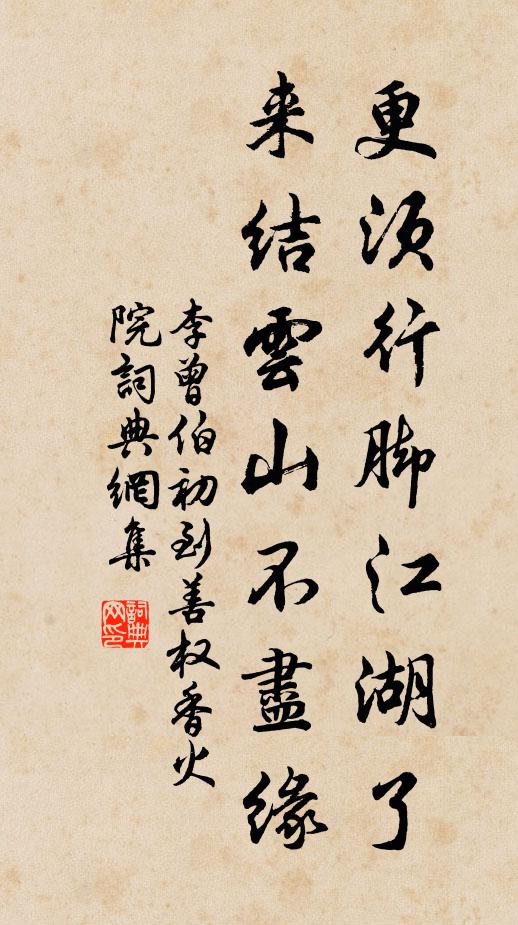 更須行脚江湖了
来結雲山不盡緣
李曾伯初到善权香火
院詞典網集
詞典
网印